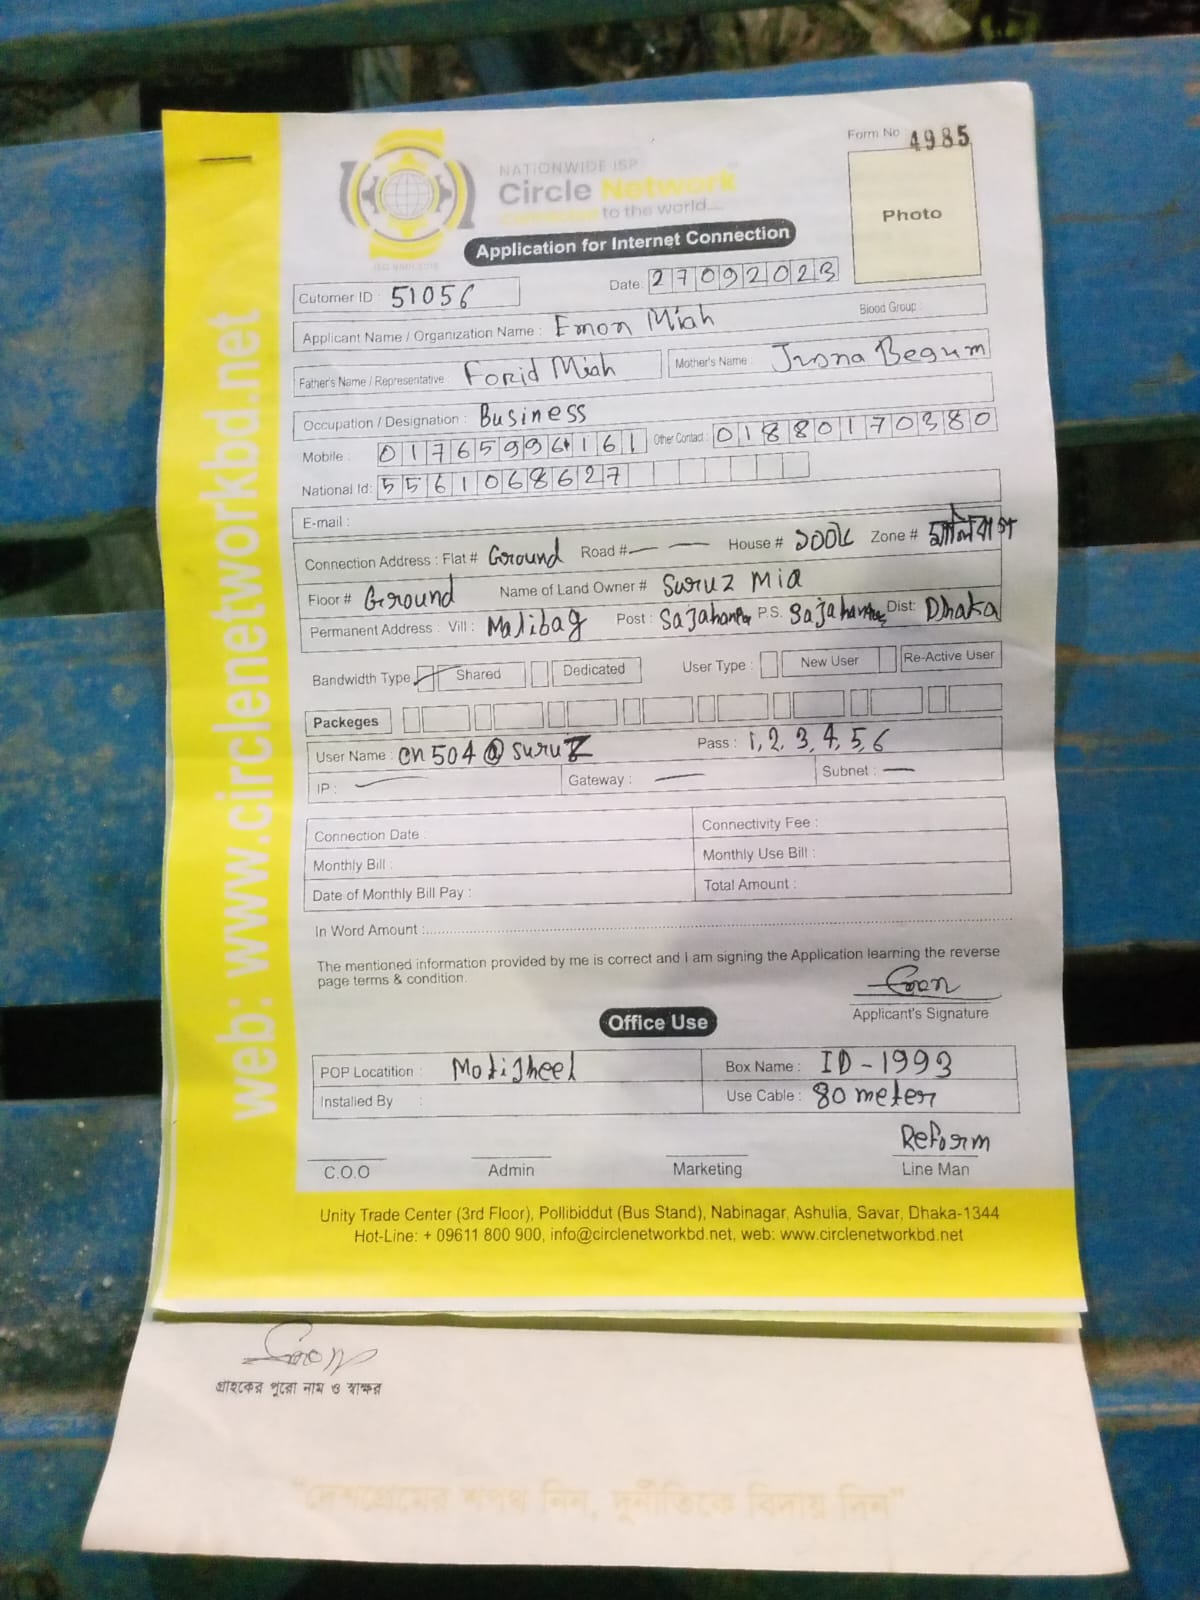 Form No 4985
NATIONWIDE ISP
Circle Network
Connected to the world....
Photo
Application for Internet Connection
Cutomer ID : 51056
Date: 27092023
Applicant Name / Organization Name : Emon Miah Blood Group :
Father's Name / Representative : Forid Miah Mother's Name : Jrona Begum
Occupation / Designation : Business
Mobile : 01765996161 Other Contact : 01880170380
National Id: 5561068627
E-mail :
Connection Address : Flat # Ground Road # — — House # ১০০৮ Zone # মালিবাগ
Floor # Ground Name of Land Owner # Suruz Mia
Permanent Address : Vill : Malibag Post : Sajahanpur P.S. Sajahanpur Dist: Dhaka
Bandwidth Type Shared Dedicated User Type : New User Re-Active User
Packeges
User Name : cn504@suruz Pass : 1,2,3,4,5,6
IP : — Gateway : — Subnet : —
Connection Date : Connectivity Fee :
Monthly Bill : Monthly Use Bill :
Date of Monthly Bill Pay : Total Amount :
In Word Amount :
The mentioned information provided by me is correct and I am signing the Application learning the reverse
page terms & condition.
Emon
Applicant's Signature
Office Use
POP Locatition : Motijheel Box Name : ID-1993
Installed By : Use Cable : 80 meter
Reform
C.O.O Admin Marketing Line Man
Unity Trade Center (3rd Floor), Pollibiddut (Bus Stand), Nabinagar, Ashulia, Savar, Dhaka-1344
Hot-Line: + 09611 800 900, info@circlenetworkbd.net, web: www.circlenetworkbd.net
web: www.circlenetworkbd.net
Emon
গ্রাহকের পুরো নাম ও স্বাক্ষর
"দেশপ্রেমের শপথ নিন, দুর্নীতিকে বিদায় দিন"